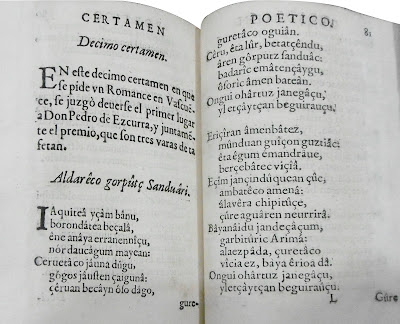 CERTAMEN
Decimo certamen.
EN este decimo certamen en que
se pide vn Romance en Vascué-
ce, se juzgò deuerse el primer lugar
a Don Pedro de Ezcurra, y juntamé-
te el premio, que son tres varas de ta
fetan.
Aldarêco gorpûtç Sanduári.
IAquireâ yçâm bânu,
borondâtea beçalâ,
êne anâya erranenniçu,
nor daucâgum mayean:
Ceruetâco jáuna dûgu,
gôgos jáusten çaigunâ:
çêruan becâyn ôso dâgo,
gure-
POETICO.
81
guretâco oguiân.
Cêru, êta lûr, betatçêndu,
âren gôrputz sanduâc:
badaric emâtençaygu,
ôsoric âmen bateân.
Ongui ohârtuz janegâçu,
yl etçâytçan beguirauçu.
Eriçiran âmenbâtez,
múnduan guiçon guztiac:
êta êgum emandrâue,
berçebâtec viçiâ.
Eçim jançindúquean çûc,
ambatêco amenâ:
âlavêra chipitûçe,
çûre aguâren neurrirâ.
Bâyanâidu jandeçâçum,
garbitûric Arimâ:
alaezpâda, çuretâco
vicia ez, baya êrioa dâ.
Ongui ohârtuz janegâçu,
yl etçâytçan beguirauçu.
L
Gûre